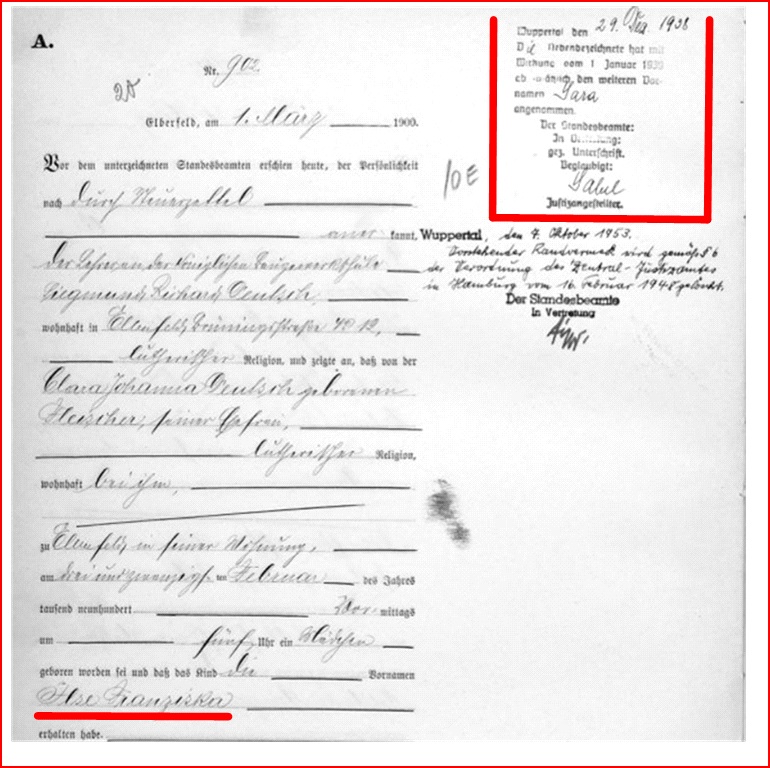 A.
Nr. 902
Elberfeld, am 1. März 1900.
Vor dem unterzeichneten Standesbeamten erschien heute, der Persönlichkeit
nach durch
kannt,
der Lehrer an der Königlichen
Siegmund Richard Deutsch,
wohnhaft in Elberfeld, 12,
lutherischer Religion, und zeigte an, daß von der
Clara Johanna Deutsch geborenen
Fleischer, seiner Ehefrau,
lutherischer Religion,
wohnhaft bei ihm,
zu Elberfeld in seiner Wohnung,
am drei und zwanzigsten Februar des Jahres
tausend neunhundert Vormittags
um fünf Uhr ein Mädchen
geboren worden sei und daß das Kind die Vornamen
Ilse Franziska
erhalten habe.
Wuppertal den 29. Dez. 1938
Die Nebenbezeichnete hat mit
Wirkung vom 1 Januar 1939
ab zusätzlich den weiteren Vor-
namen Sara
angenommen.
Der Standesbeamte:
In Vertretung:
gez. Unterschrift.
Beglaubigt:
Justizangestellter.
10 E
Wuppertal, den 7. Oktober 1953.
Vorstehender Randvermerk wird gemäß § 6
der Verordnung des Zentral-Justizamtes
in Hamburg vom 16. Februar 1948 gelöscht.
Der Standesbeamte
In Vertretung